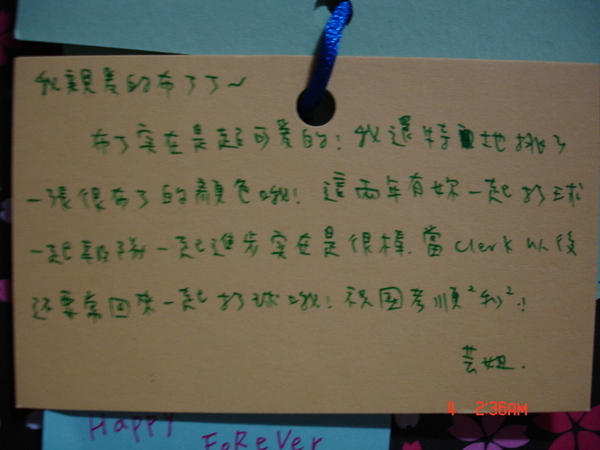 我親愛的布丁丁~
布丁實在是超可愛的!我還特地挑了
一張很布丁的顏色哦!這兩年有妳一起打球
一起系隊一起進步實在是很棒.當clerk以後
還要常回來一起打球哦!祝國考順²利²!
芸妞.
4 2:35AM
Happy
FoReVer